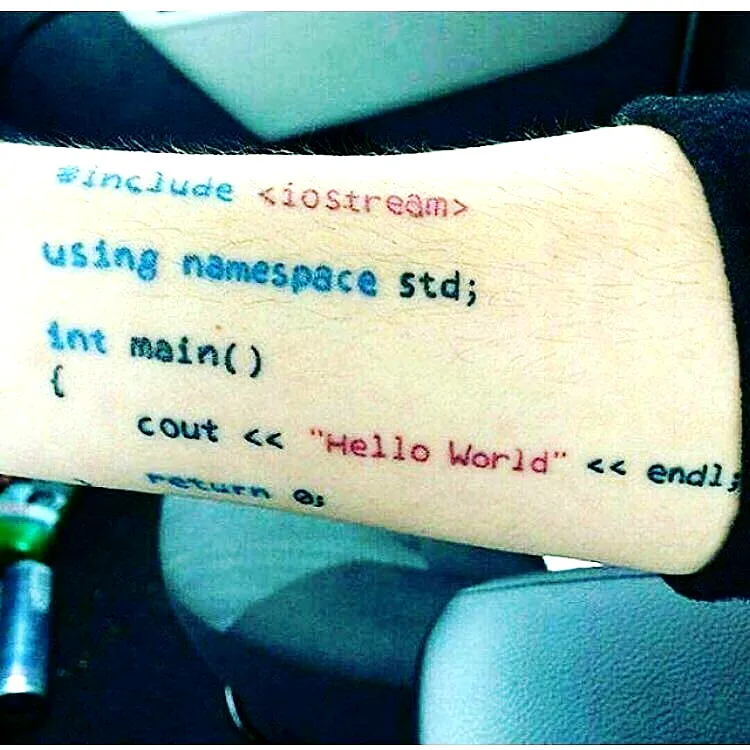 #include <iostream>
using namespace std;
int main()
{
cout << "Hello World" << endl;
return 0;
}